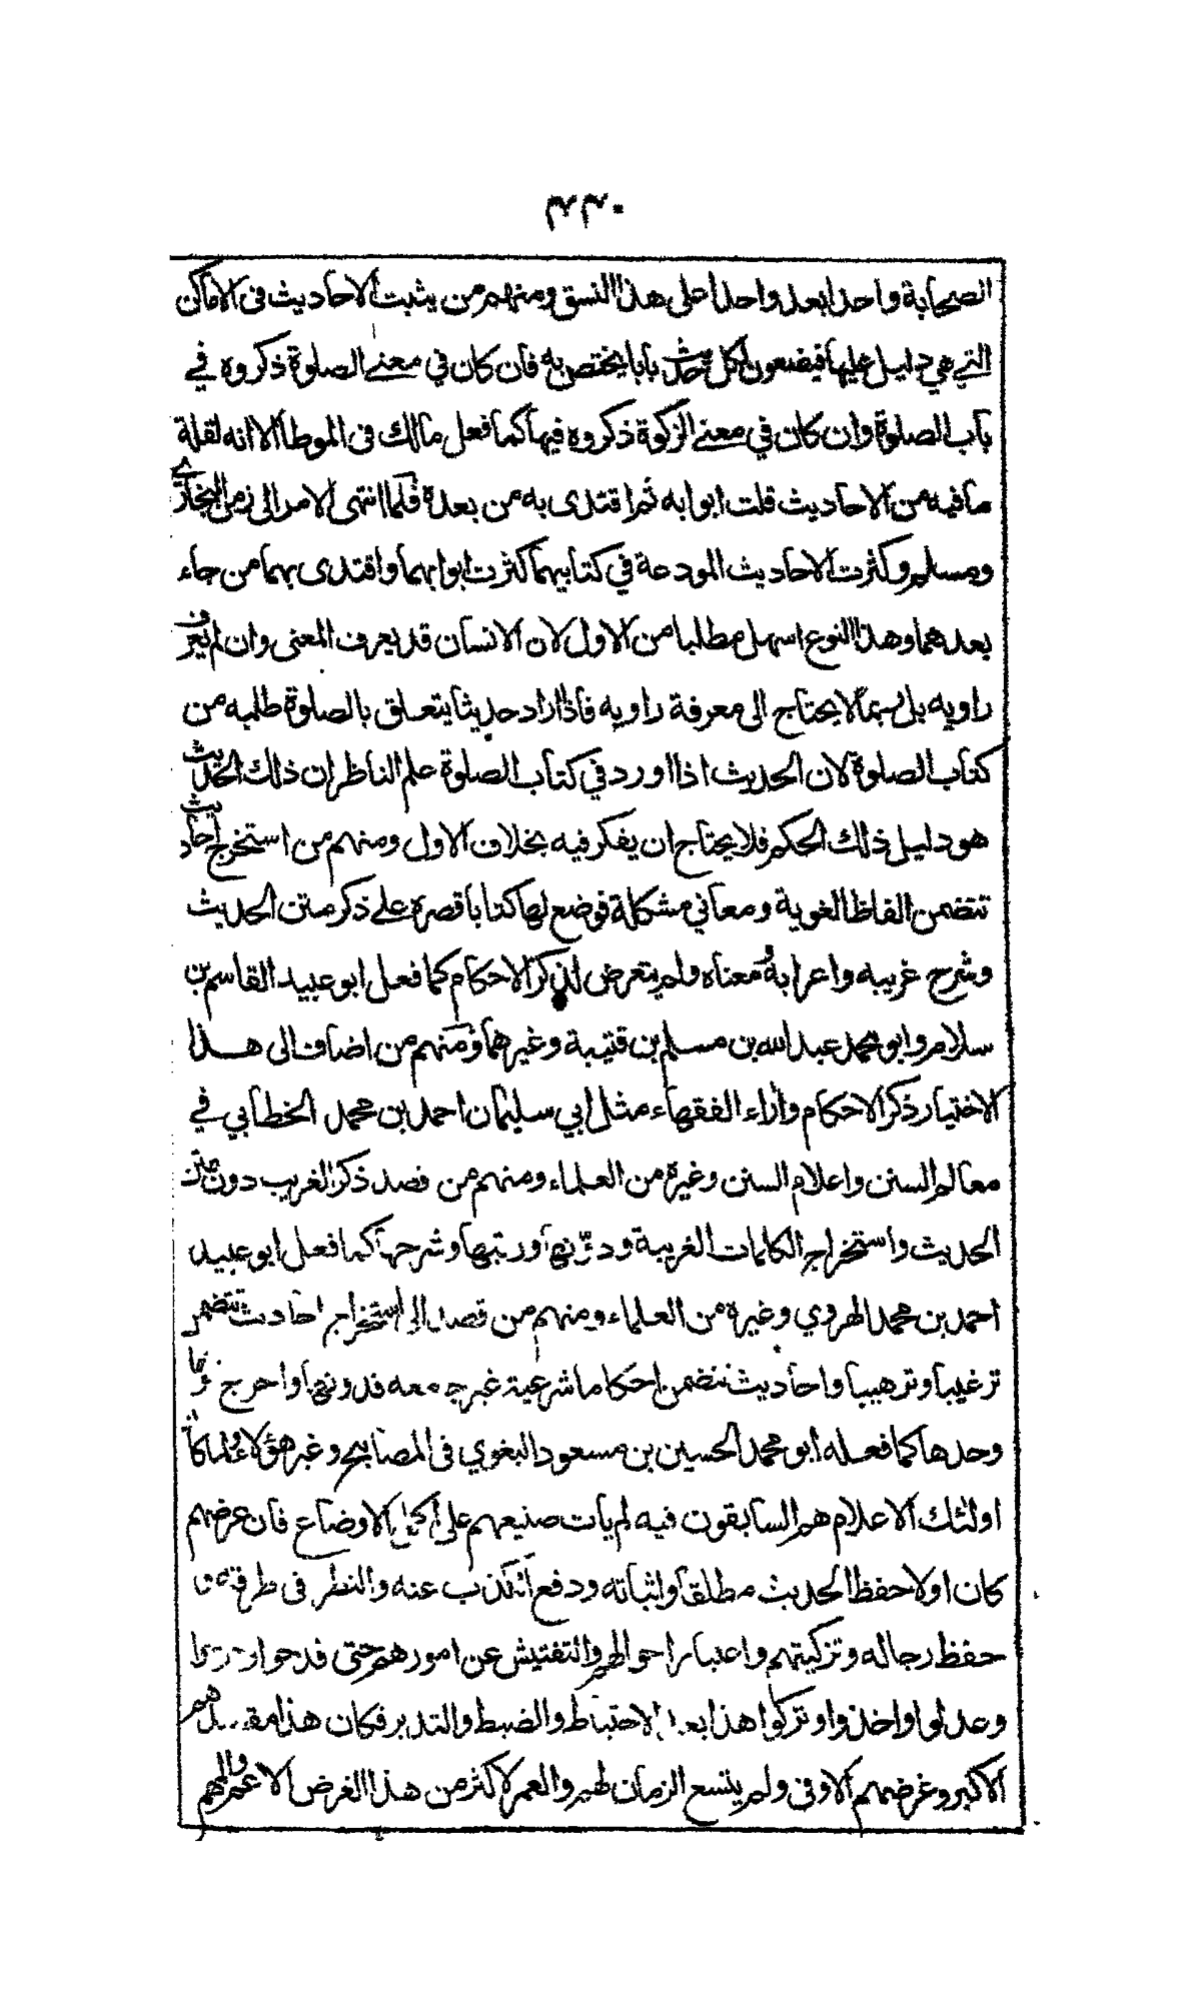 ٢٢٠
الصحابة واحدا بعد واحد على هذا النسق ومنهم من يثبت الاحاديث في الاماكن
التي هي دليل عليها فيضعون لكل حديث بابا يختص به فان كان في معنى الصلوة ذكروه في
باب الصلوة وان كان في معنى الزكوة ذكروه فيها كما فعل مالك في الموطا الا انه لقلة
ما فيه من الاحاديث قلت ابوابه ثم اقتدى به من بعده فلما انتهى الامر الى زمن البخاري
ومسلم وكثرت الاحاديث المودعة في كتابيهما كثرت ابوابهما واقتدى بهما من جاء
بعدهما وهذا النوع اسهل مطلبا من الاول لان الانسان قد يعرف المعنى وان لم يعرف
راويه بل ربما لا يحتاج الى معرفة راويه فاذا اراد حديثا يتعلق بالصلوة طلبه من
كتاب الصلوة لان الحديث اذا اورد في كتاب الصلوة علم الناظر ان ذلك الحديث
هو دليل ذلك الحكم فلا يحتاج ان يفكر فيه بخلاف الاول ومنهم من استخرج احاديث
تتضمن الفاظا لغوية ومعاني مشكلة فوضع لها كتابا قصره على ذكر متن الحديث
وشرح غريبه واعرابه ومعناه ولم يتعرض لذكر الاحكام كما فعل ابو عبيد القاسم بن
سلام وابو محمد عبد الله بن مسلم بن قتيبة وغيرهما ومنهم من اضاف الى هذا
الاختيار ذكر الاحكام وآراء الفقهاء مثل ابي سليمان احمد بن محمد الخطابي في
معالم السنن واعلام السنن وغيره من العلماء ومنهم من قصد ذكر الغريب دون متن
الحديث واستخراج الكلمات الغريبة ودونها ورتبها وشرحها كما فعل ابو عبيد
احمد بن محمد الهروي وغيره من العلماء ومنهم من قصد الى استخراج احاديث تتضمن
ترغيبا وترهيبا واحاديث تتضمن احكاما شرعية غير جامعه فدونها واخرج
وحدها كما فعله ابو محمد الحسين بن مسعود البغوي في المصابيح وغير هؤلاء ولما كان
اولئك الاعلام هم السابقون فيه لم يات صنيعهم على اكمل الاوضاع فان غرضهم
كان اولا حفظ الحديث مطلقا واثباته ودفع الكذب عنه والنظر في طرقه و
حفظ رجاله وتزكيتهم واعتبار احوالهم والتفتيش عن امورهم حتى قدحوا
وعدلوا واخذوا وتركوا هذا بعد الاحتياط والضبط والتدبر فكان هذا مقصدهم
الاكبر وغرضهم الاوفى ولم يتسع الزمان لهم والعمر لاكثر من هذا الغرض الاعم والمهم